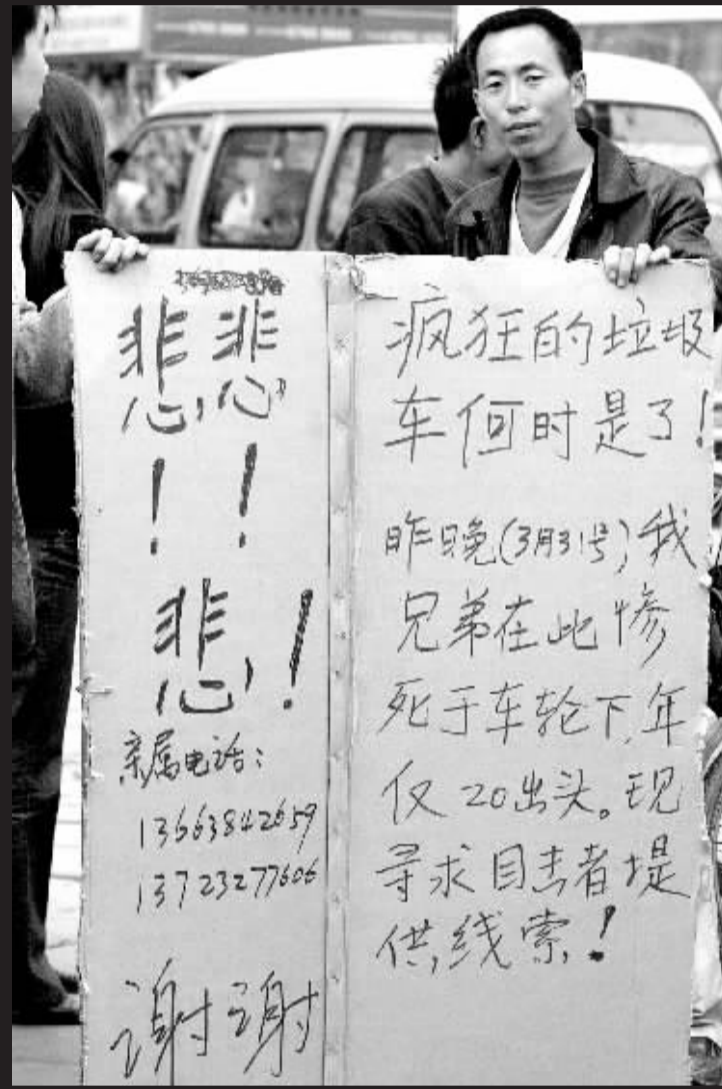 悲悲
！！
悲！
亲属电话：
13663842659
13723277606
谢谢
疯狂的垃圾
车何时是了！
昨晚(3月31号),我
兄弟在此惨
死于车轮下,年
仅20出头。现
寻求目击者堤
供线索！